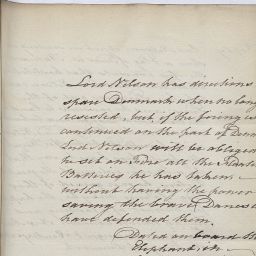 Lord Nilson has directions
spare Denmark when no long
resested, but if the fireing is
continued on the part of Denm
Lord Nilson will be obliged
to set on Fire all the Floatin
Batteries he has taken,
without having the power
saving the brave Danes w
have defended them.
Dated on board H
Elephant, in